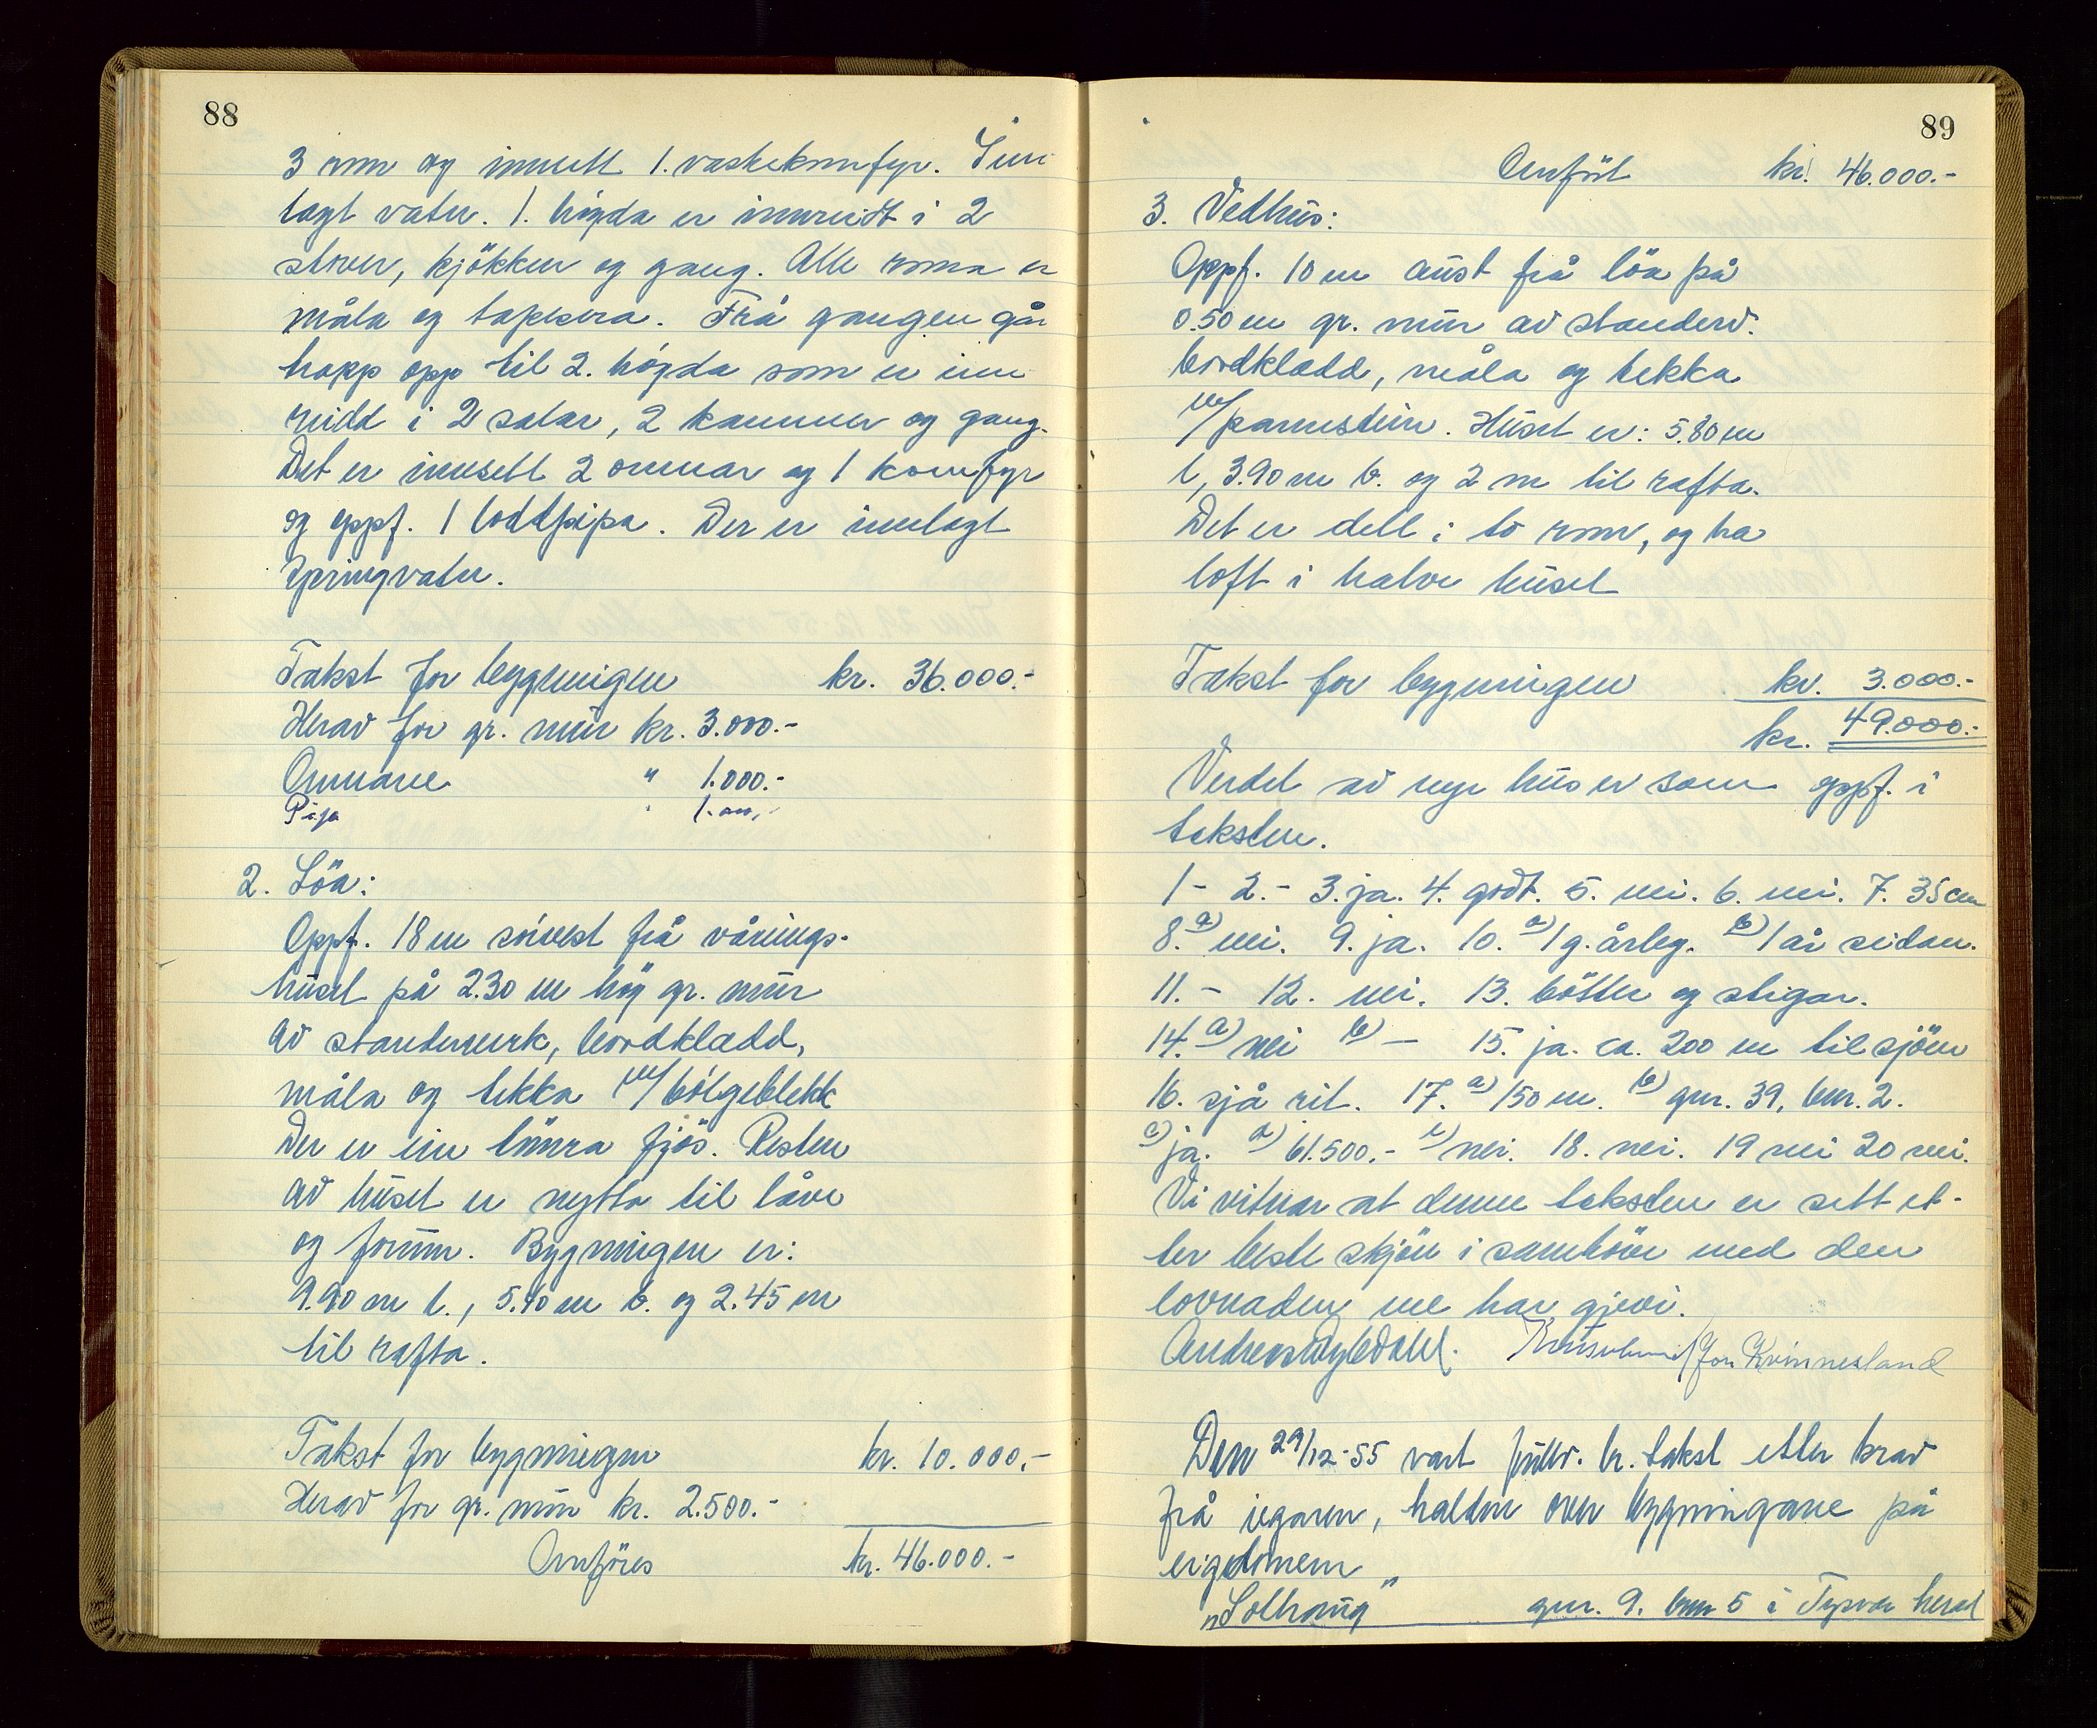 88
3 rom og innsett 1. vaskekomfyr. Inn
lagt vatn. 1. högda er innreidt i 2
stover, kjökken og gang. Alle roma er
måla og tapesera. Frå gangen går
trapp opp til 2. högda som er inn
reidd i 2 salar, 2 kammer og gang.
Det er innsett 2 omnar og 1 komfyr
og oppf. 1 loddpipa. Der er innlagt
springvatn.
Takst for bygningen kr. 36.000.-
Herav for gr. mur kr. 3.000.-
Omnane " 1.000.-
Pipa " 1.000,-
2. Löa:
Oppf. 18 m sörvest frå vånings-
huset på 2.30 m hög gr. mur
av standverk, bordkledd,
måla og tekka m/bölgeblekk
Der er ein tömra fjös. Resten
av huset er nytta til låve
og forrum. Bygningen er:
9.90 m l., 5.40 m b. og 2.45 m
til rafta.
Takst for bygningen kr. 10.000,-
Herav for gr. mur kr. 2.500.-
Omföres kr. 46.000.-
89
Omfört kr. 46.000.-
3. Vedhus:
Oppf. 10 m aust frå löa på
0.50 m gr. mur av standerv.
bordkledd, måla og tekka
m/pannestein. Huset er: 5.80 m
l, 3.90 m b. og 2 m til rafta.
Det er delt i to rom, og tra
loft i halve huset
Takst for bygningen kr. 3.000.-
kr. 49.000.-
Verdet av nye hus er som oppf. i
taksten.
1 - 2. - 3. ja. 4. godt. 5. nei. 6. nei. 7. 35 cm
8. a) nei. 9. ja. 10. a) 1 g. årleg. b) 1 år sidan.
11. - 12. nei. 13. bötter og stigar.
14. a) nei b) - 15. ja. ca. 200 m til sjöen
16. sjå rit. 17. a) 150 m. b) gnr. 39, bnr. 2.
c) ja. d) 61.500.- e) nei. 18. nei. 19 nei 20 nei.
Vi vitnar at denne taksten er sett et-
ter beste skjön i samhöve med den
lovnaden me har gjevi.
Andreas Dybdahl. Jon Kvinnesland
Den 29/12-55 vart fullv. br. takst etter krav
frå eigaren, halden over bygningane på
eigedomen
"Solhaug" gnr. 9. bnr 5 i Tysvær herad